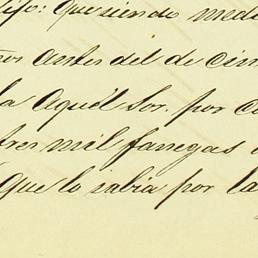 dijo: Que siendo medi
ños antes del de cin
la Aquel Sor. por co
tres mil fanegas d
Que lo sabia por la